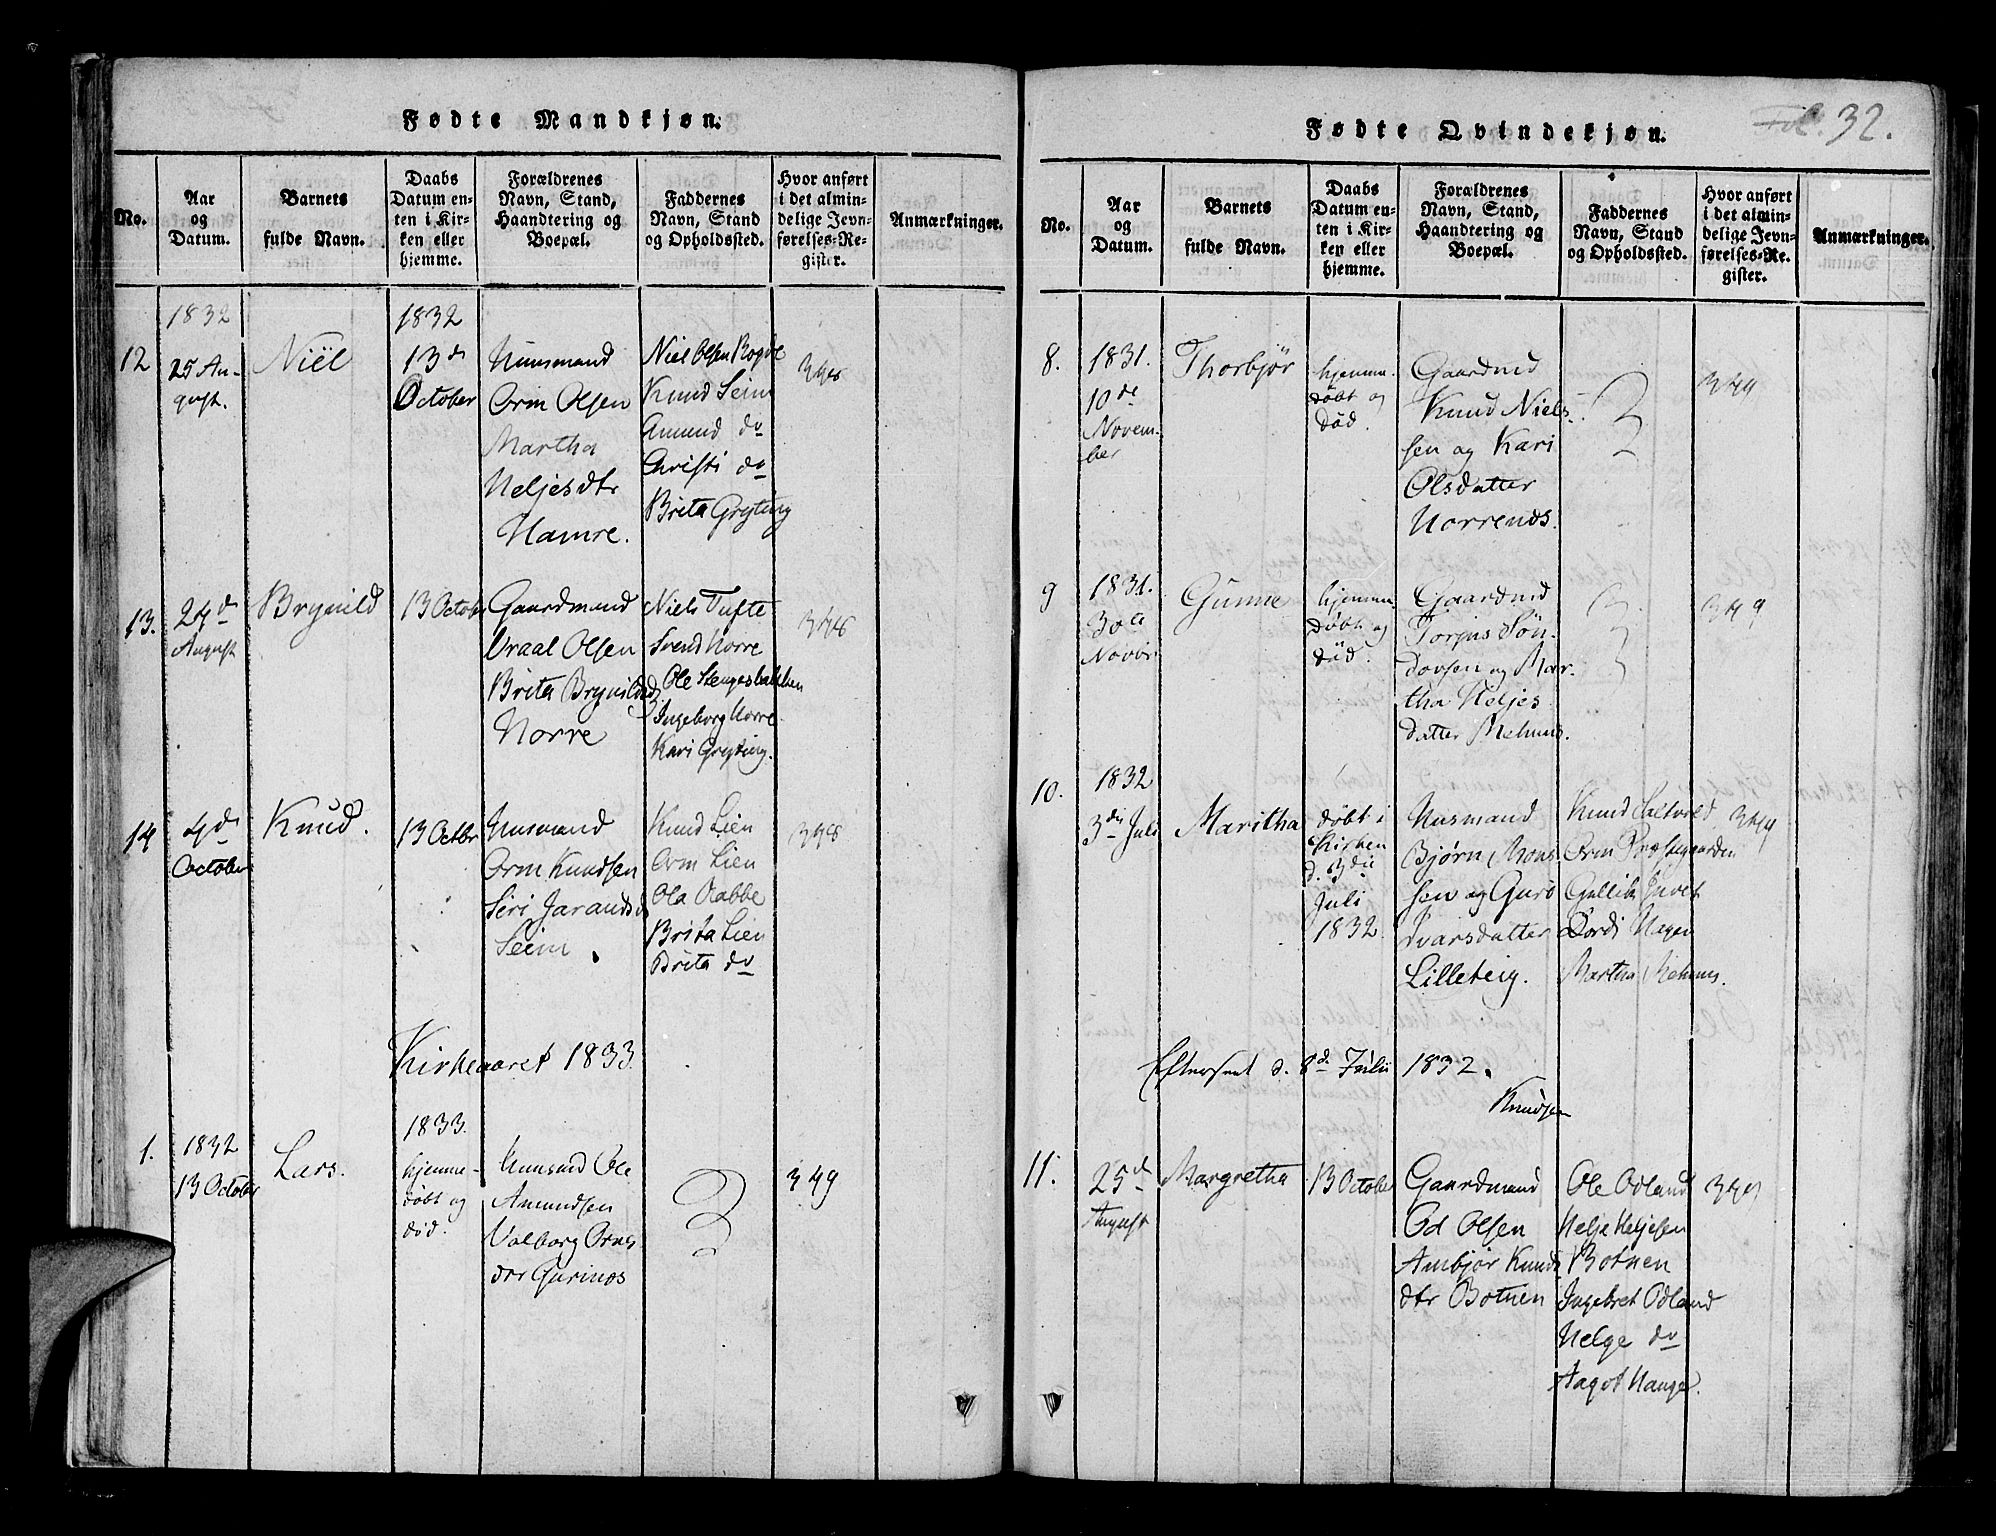 Fødte Mandkjøn.
No.
Aar
og
Datum.
Barnets
fulde Navn.
Daabs
Datum en-
ten i Kir-
ken eller
hjemme.
Forældrenes
Navn, Stand,
Haandtering og
Boepæl.
Faddernes
Navn, Stand
og Opholdssted.
Hvor anført
i det almin-
delige Jevn-
førelses-Re-
gister.
Anmærkninger.
12
1832
25 Au-
gust.
Niel
1832
13de
October
Huusmand
Orm Olsen
Martha
Heljesdtr
Hamre.
Niel Olsen Bogde
Knud Seim
Amund do
Christi do
Brita Gryting
348
13.
24d
August
Brynild
13 October
Gaardmand
Vraal Olsen
Brita Brynildsd
Norre
Niels Tufte
Svend Norre
Ole Stengesbakken
Ingeborg Norre
Kari Gryting.
348
14
4d
October
Knud.
13 Octbr
Husmand
Orm Knudsen
Siri Jarandsd
Seim
Knud Lien
Orm Lien
Ola Rabbe
Brita Lien
Brita do
348
Kirkeaaret 1833
1.
1832
13 October
Lars.
1833.
hjemme-
døbt og
død.
Huusmd Ole
Amundsen
Valborg Orms
dtr Gurinos
349
Fødte Qvindekjøn.
Fol. 32.
No.
Aar
og
Datum.
Barnets
fulde Navn.
Daabs
Datum en-
ten i Kir-
ken eller
hjemme.
Forældrenes
Navn, Stand,
Haandtering og
Boepæl.
Faddernes
Navn, Stand
og Opholdssted.
Hvor anført
i det almin-
delige Jevn-
førelses-Re-
gister.
Anmærkninger.
8.
1831.
10de
Novem-
ber
Thorbjør
hjemme
døbt og
død.
Gaardmd
Knud Niels-
sen og Kari
Olsdatter
Norrends.
349
9
1831.
30te
Novbr
Gunne
hjemme
døbt og
død.
Gaardmd
Torgus Søn-
dovsen og Mar-
tha Heljes
datter Mehuus.
349
10.
1832
3die Juli
Maritha
døbt i
Kirken
d. 3die
Juli
1832.
Husmand
Bjørn Mons
sen og Guro
Ivarsdatter
Lilleteig.
Knud Saltvold
Orm Præstegaarden
Gullik Juvet
Dordi Hagen
Martha Mehuus.
349
Efterseet d. 8d Julii 1832.
Knudsen
11.
25d
August
Margretha
13 October
Gaardmand
Od Olsen
Ambjør Knuds
dtr Botnen
Ole Odland
Helje Heljesen
Botnen
Ingebret Odland
Helge do
Aagot Hauge.
349